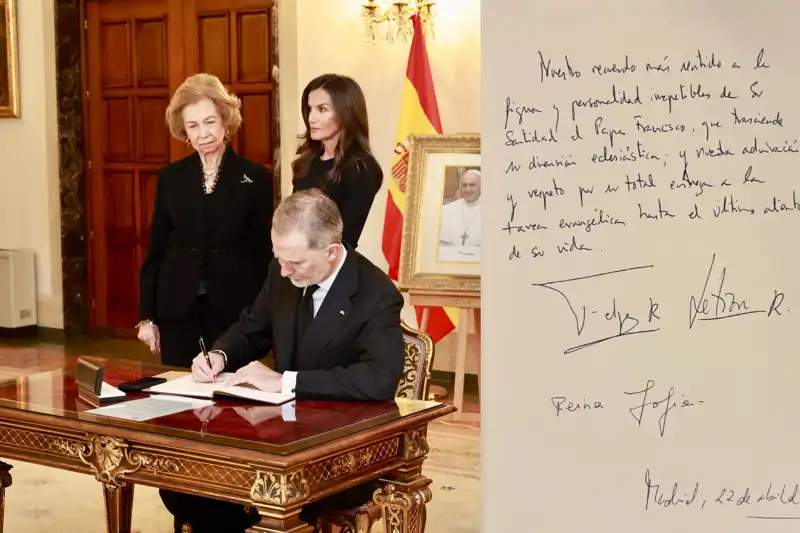 Nuestro recuerdo más sentido a la
figura y personalidad irrepetibles de Su
Santidad el Papa Francisco, que trasciende
su dimensión eclesiástica; y nuestra admiración
y respeto por su total entrega a la
tarea evangélica hasta el último aliento
de su vida.
Felipe R Letizia R.
Reina Sofía.
Madrid, 22 de abril de